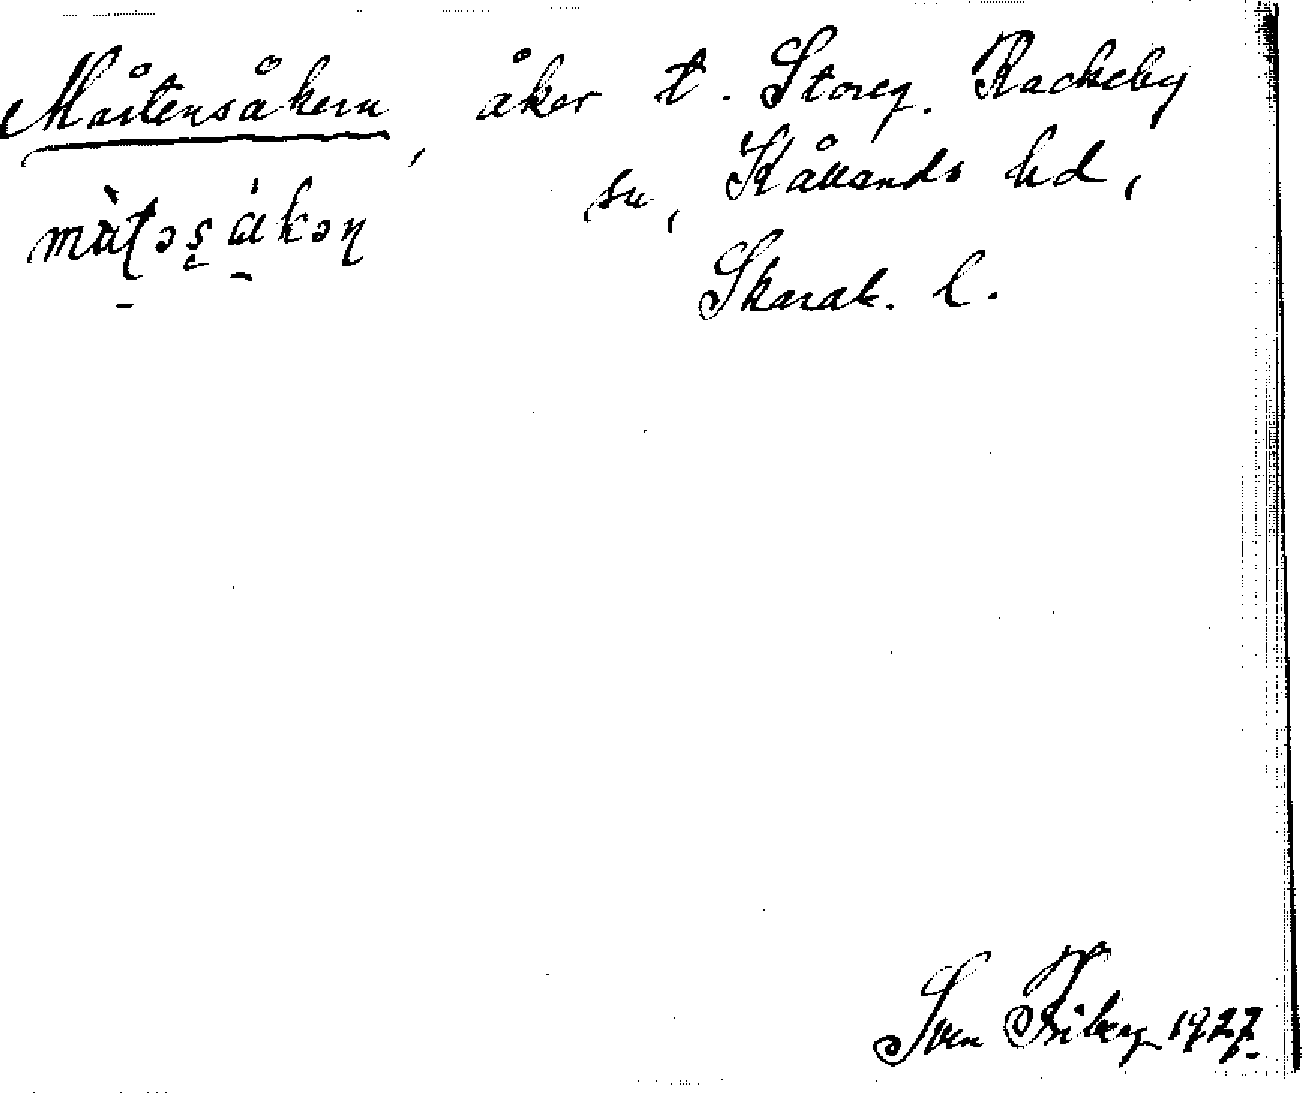 Mårtensåkern, åker t. Storeg. Rackeby
sn, Kållands hd,
Skarab. l.
Sven Friberg 1927.